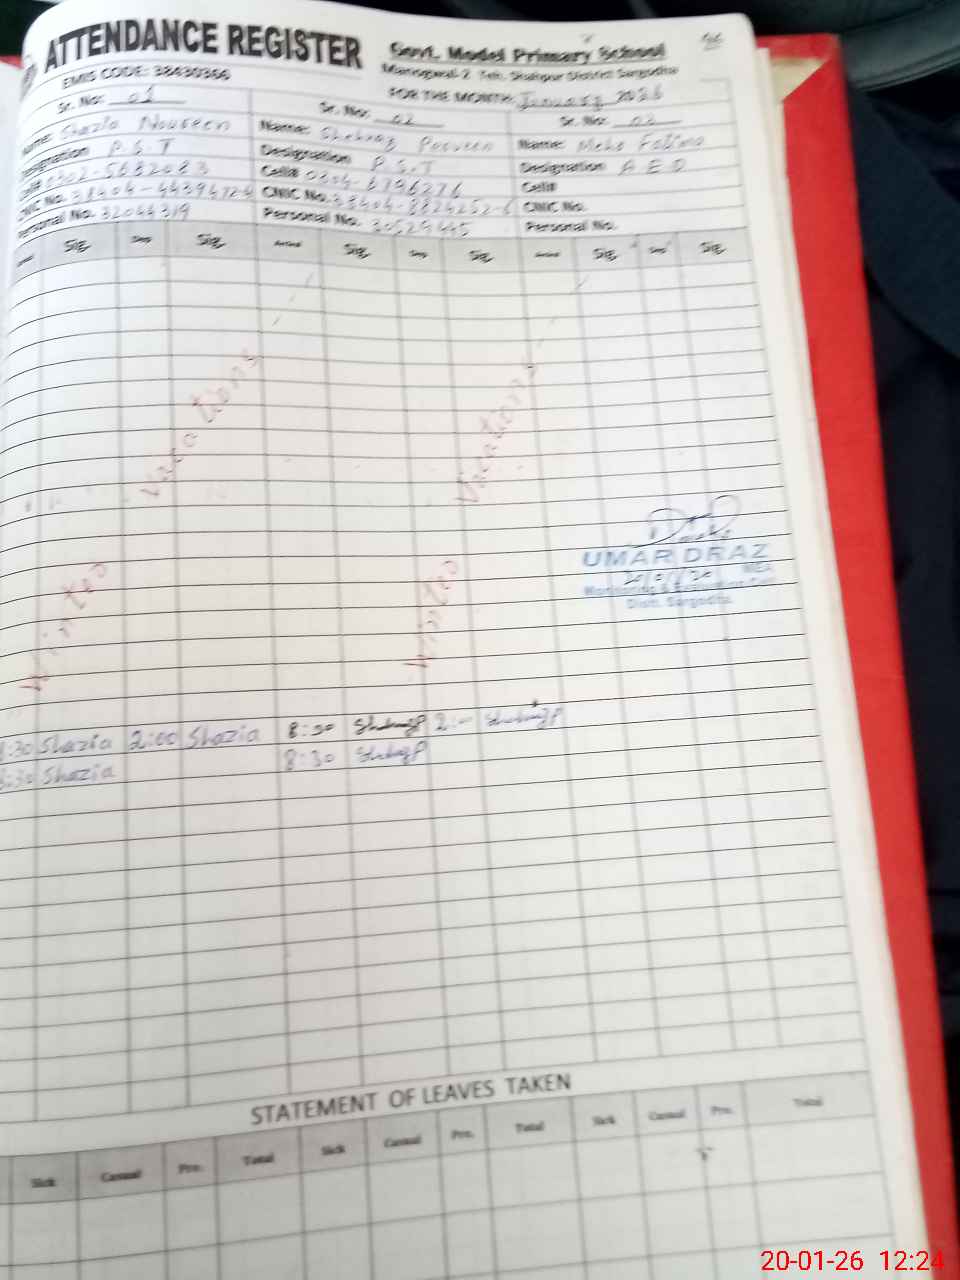 ATTENDANCE REGISTER
Govt. Model Primary School
EMIS CODE: 38430366
Teh. Shahpur District Sargodha
FOR THE MONTH January 2026
Sr. No: 01 Sr. No: 02 Sr. No: 03
Name: Shazia Noureen Name: Shehnaz Parveen Name: Fatima
Designation P.S.T Designation P.S.T Designation A E O
Cell# 0302-5682083 Cell# 0304-6796276 Cell#
CNIC No. 38404-4439472-4 CNIC No. 38404-8824252-6 CNIC No.
Personal No. 32044319 Personal No. 30529445 Personal No.
Sig. Dep Sig. Arrival Sig. Dep Sig. Arrival Sig. Dep Sig.
Winter Vacations Winter Vacations
UMAR DRAZ
20/01/26 MEA
Monitoring & Evaluation Cell
Distt. Sargodha.
8:30 Shazia 2:00 Shazia 8:30 ShehnazP 2:00 ShehnazP
8:30 Shazia 8:30 ShehnazP
STATEMENT OF LEAVES TAKEN
Sick Casual Pre. Total Sick Casual Pre. Total Sick Casual Pre. Total
20-01-26 12:24